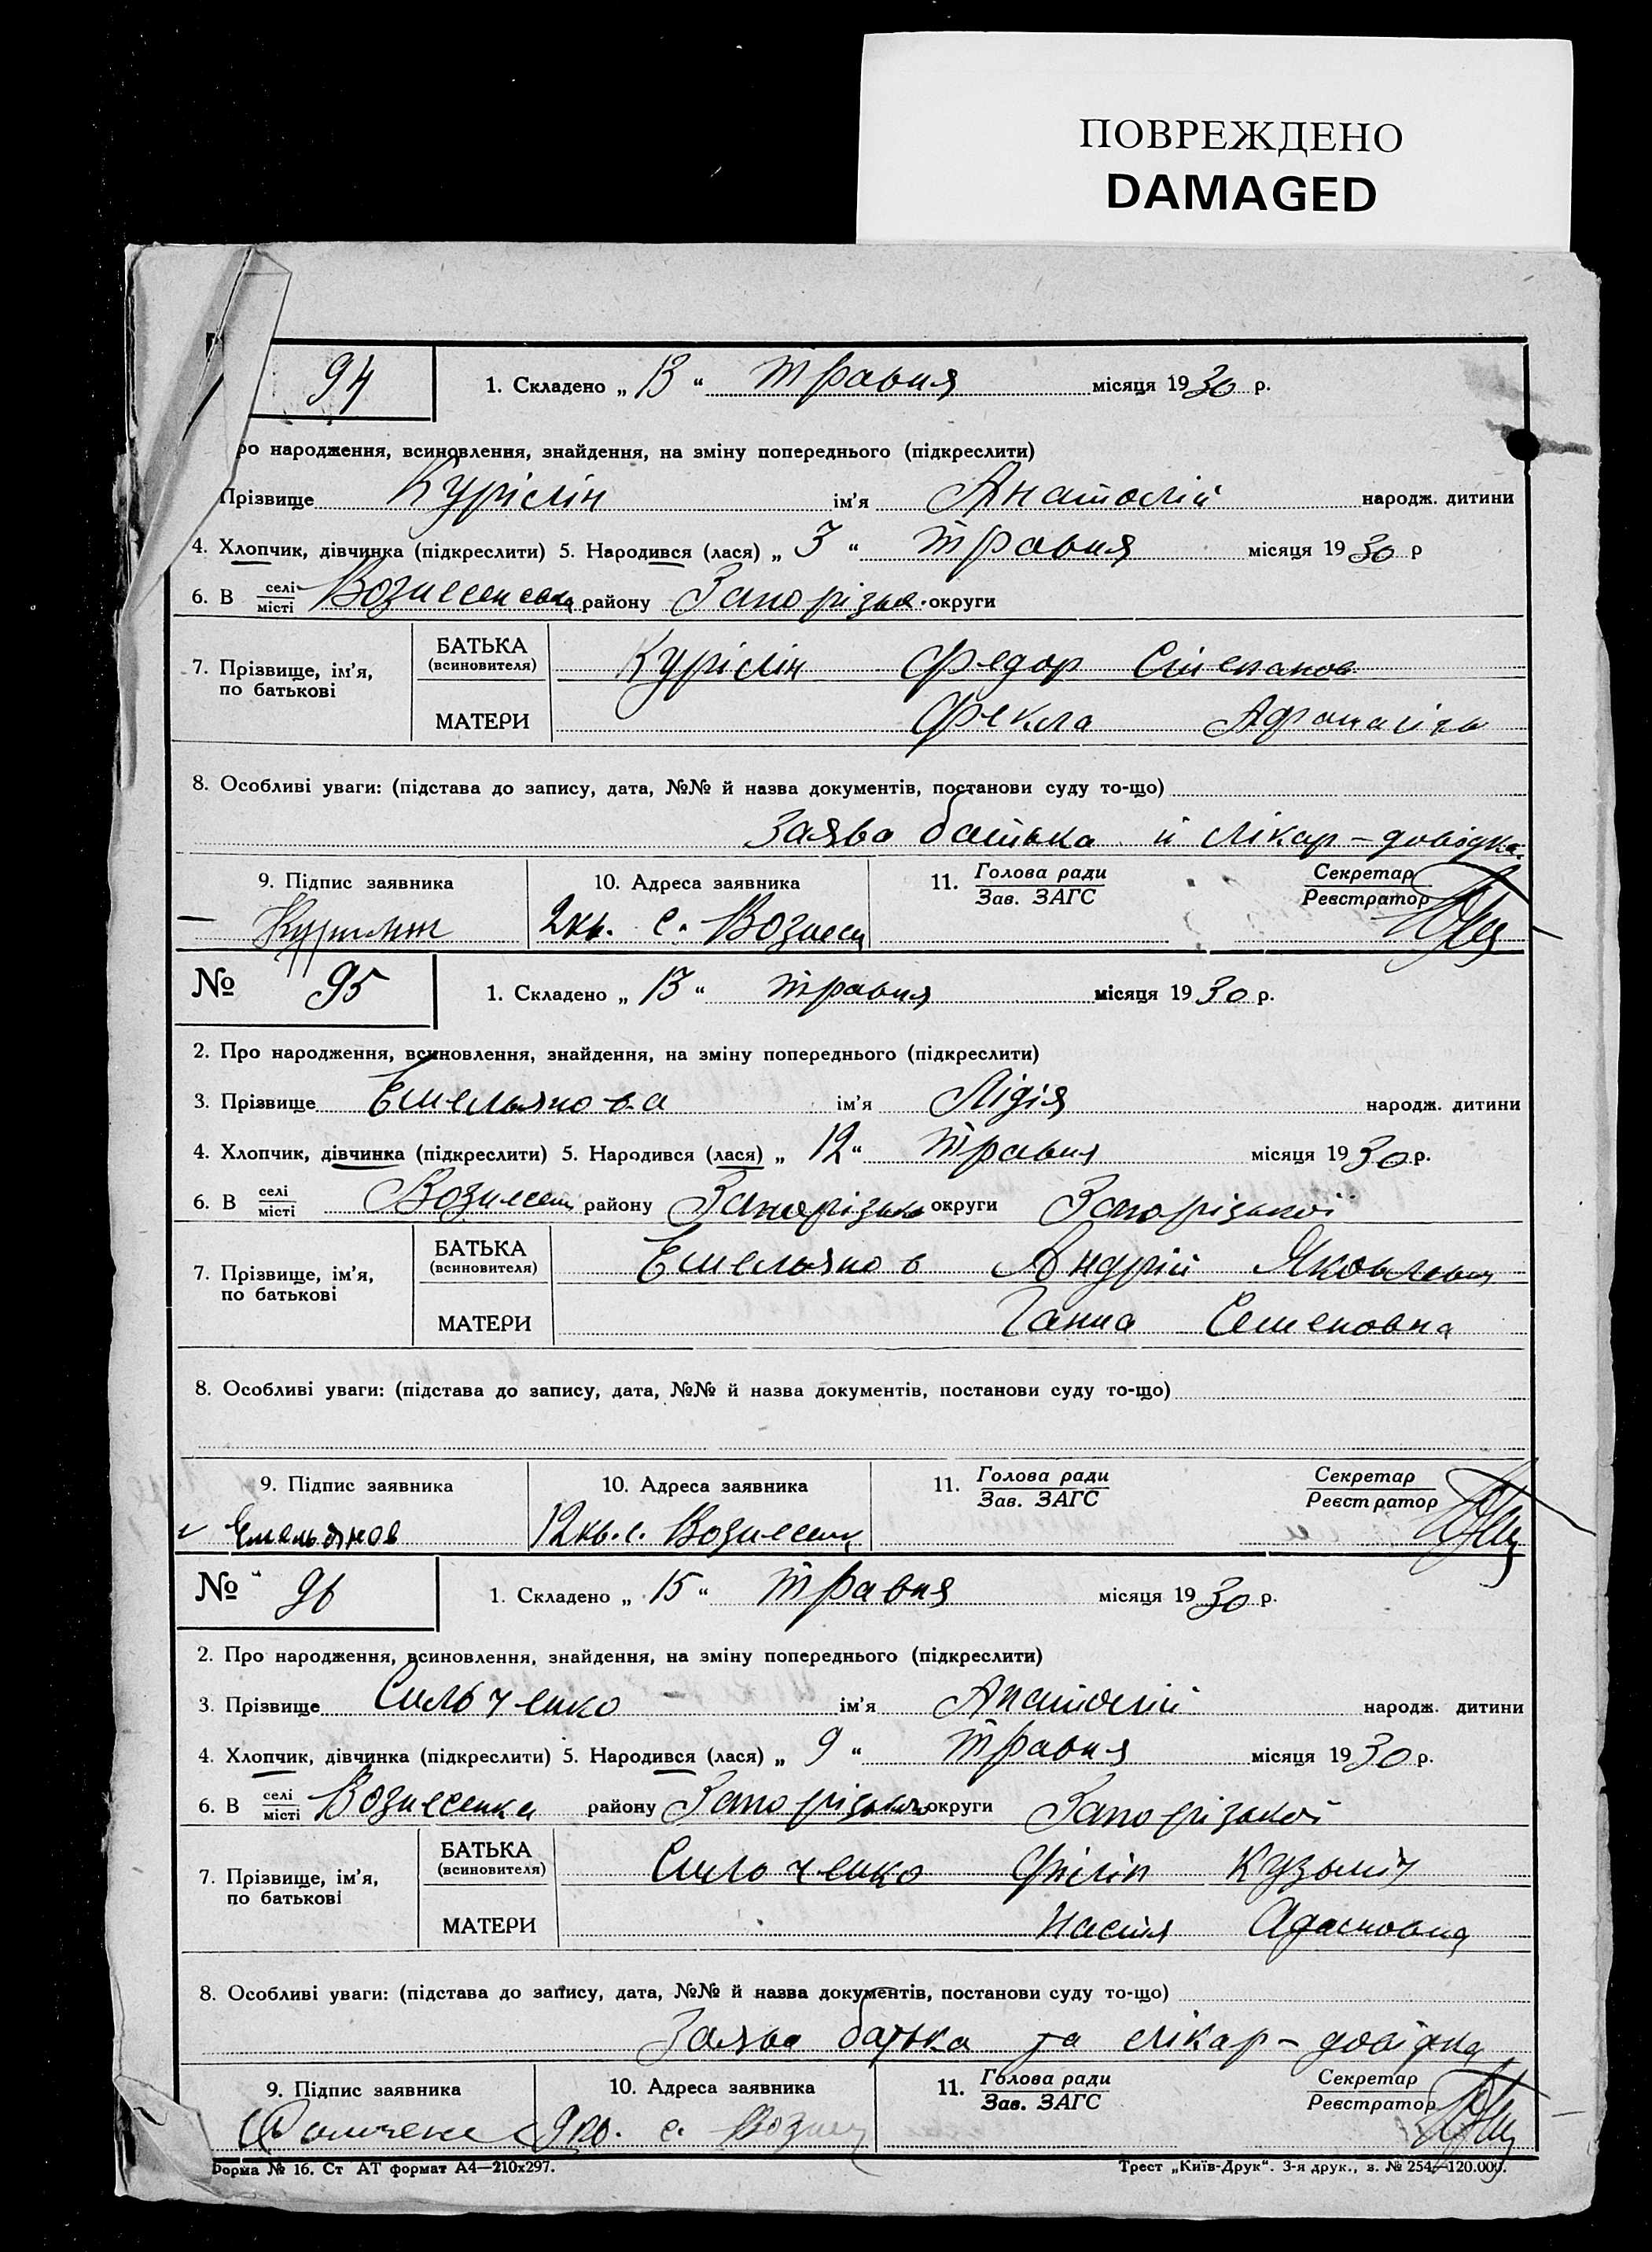 ПОВРЕЖДЕНО
DAMAGED
94
1. Складено „ 13 “ травня місяця 1930 р.
ро народження, всиновлення, знайдення, на зміну попереднього (підкреслити)
Прізвище Курілін ім'я Анатолій народж. дитини
4. Хлопчик, дівчинка (підкреслити) 5. Народився (лася) „ 3 “ травня місяця 1930 р
6. В селі місті Вознесенська району Запорізька округи
7. Прізвище, ім'я, по батькові
БАТЬКА (всиновителя) Курілін Федор Степанов
МАТЕРИ Фекла
8. Особливі уваги: (підстава до запису, дата, №№ й назва документів, постанови суду то-що)
Заява батька й лікар – довідка
9. Підпис заявника 10. Адреса заявника 11. Голова ради Зав. ЗАГС Секретар Реєстратор
2 кв. с. Вознесен
№ 95 1. Складено „ 13 “ травня місяця 1930 р.
2. Про народження, всиновлення, знайдення, на зміну попереднього (підкреслити)
3. Прізвище Емельянова ім'я Лідія народж. дитини
4. Хлопчик, дівчинка (підкреслити) 5. Народився (лася) „ 12 “ травня місяця 1930 р.
6. В селі місті Вознесен району Запорізько округи Запорізької
7. Прізвище, ім'я, по батькові
БАТЬКА (всиновителя) Емельянов Андрій Яковлевич
МАТЕРИ Ганна Семеновна
8. Особливі уваги: (підстава до запису, дата, №№ й назва документів, постанови суду то-що)
9. Підпис заявника 10. Адреса заявника 11. Голова ради Зав. ЗАГС Секретар Реєстратор
Емельянов 12 кв. с. Вознесен
№ 96 1. Складено „ 15 “ травня місяця 1930 р.
2. Про народження, всиновлення, знайдення, на зміну попереднього (підкреслити)
3. Прізвище Сильченко ім'я Анатолій народж. дитини
4. Хлопчик, дівчинка (підкреслити) 5. Народився (лася) „ 9 “ травня місяця 1930 р.
6. В селі місті Вознесенка району Запорізько округи Запорізької
7. Прізвище, ім'я, по батькові
БАТЬКА (всиновителя) Сильченко Філіп Кузьміч
МАТЕРИ Настя
8. Особливі уваги: (підстава до запису, дата, №№ й назва документів, постанови суду то-що)
Заява батька та лікар – довідка
9. Підпис заявника 10. Адреса заявника 11. Голова ради Зав. ЗАГС Секретар Реєстратор
с. Вознесен
Форма № 16. Ст АТ формат А4—210х297. Трест „Київ-Друк“. 3-я друк., з. № 254—120.000.